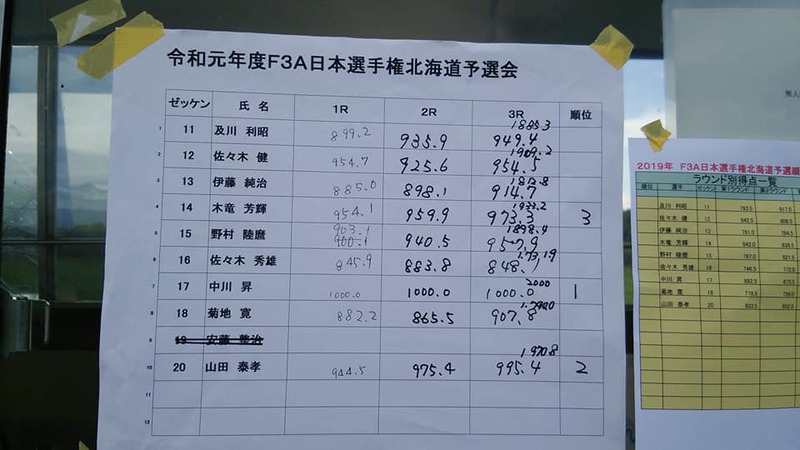 令和元年度F3A日本選手権北海道予選会
ゼッケン 氏 名 1R 2R 3R 順位
1885.3
1 11 及川 利昭 899.2 935.9 949.4
1909.2
2 12 佐々木 健 954.7 925.6 954.5
1812.8
3 13 伊藤 純治 885.0 898.1 914.7
1933.2
4 14 木竜 芳輝 954.1 959.9 973.3 3
903.1 1898.4
5 15 野村 陸麿 900.1 940.5 957.9
6 16 佐々木 秀雄 845.9 883.8 848.1
2000
7 17 中川 昇 1000.0 1000.0 1000.0 1
8 18 菊地 寛 882.2 865.5 907.8
9 19 安藤 整治
1970.8
10 20 山田 泰孝 944.5 975.4 995.4 2
11
12
無人
2019年 F3A日本選手権北海道予選順
ラウンド別得点一覧
順位 選手 ゼッケン 第1ラウンド
及川 利昭 11
佐々木 健 12
伊藤 純治 13
木竜 芳輝 14
野村 陸麿
佐々木 秀雄
中川 昇
菊地 寛
山田 泰孝